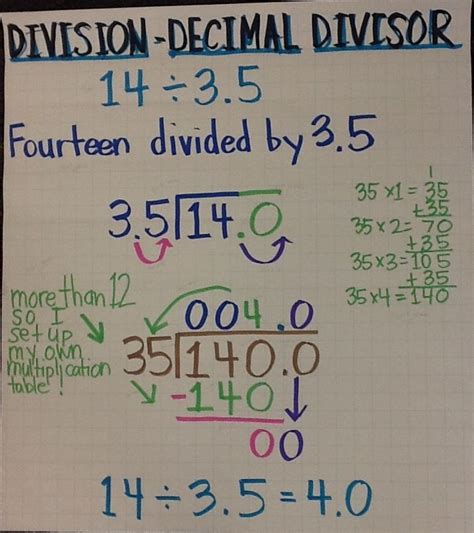 DIVISION-DECIMAL DIVISOR
14 ÷ 3.5
Fourteen divided by 3.5
3.5 14.0
1
35 x1 = 35
+35
35 x 2 = 70
+35
35 x3 = 105
+35
35 x4 = 140
more than 12
so I
set up
my own
multiplication
table!
004.0
35 140.0
-140
00
14 ÷ 3.5 = 4.0